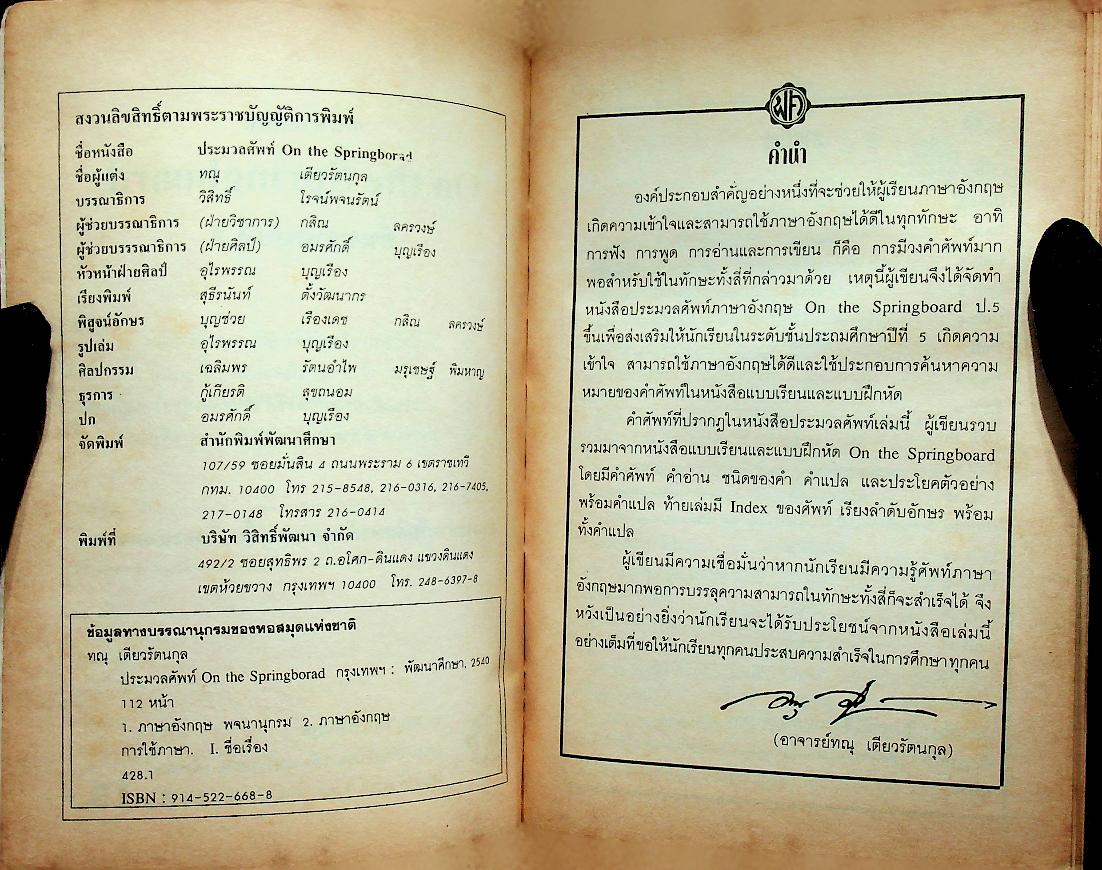 สงวนลิขสิทธิ์ตามพระราชบัญญัติการพิมพ์
ชื่อหนังสือ ประมวลศัพท์ On the Springborad
ชื่อผู้แต่ง ทณุ เตียวรัตนกุล
บรรณาธิการ วิสิทธิ์ โรจน์พจนรัตน์
ผู้ช่วยบรรณาธิการ (ฝ่ายวิชาการ) กสิณ ลครวงษ์
ผู้ช่วยบรรรณาธิการ (ฝ่ายศิลป์) อมรศักดิ์ บุญเรือง
หัวหน้าฝ่ายศิลป์ อุไรพรรณ บุญเรือง
เรียงพิมพ์ สุธีรนันท์ ตั้งวัฒนากร
พิสูจน์อักษร บุญช่วย เรืองเดช กสิณ ลครวงษ์
รูปเล่ม อุไรพรรณ บุญเรือง
ศิลปกรรม เฉลิมพร รัตนอำไพ มรุเชษฐ์ พิมหาญ
ธุรการ กู้เกียรติ สุขถนอม
ปก อมรศักดิ์ บุญเรือง
จัดพิมพ์ สำนักพิมพ์พัฒนาศึกษา
107/59 ซอยมั่นสิน 4 ถนนพระราม 6 เขตราชเทวี
กทม. 10400 โทร 215-8548, 216-0316, 216-7405,
217-0148 โทรสาร 216-0414
พิมพ์ที่ บริษัท วิสิทธิ์พัฒนา จำกัด
492/2 ซอยสุทธิพร 2 ถ.อโศก-ดินแดง แขวงดินแดง
เขตห้วยขวาง กรุงเทพฯ 10400 โทร. 248-6397-8
ข้อมูลทางบรรณานุกรมของหอสมุดแห่งชาติ
ทณุ เตียวรัตนกุล
ประมวลศัพท์ On the Springborad กรุงเทพฯ : พัฒนาศึกษา, 2540
112 หน้า
1. ภาษาอังกฤษ พจนานุกรม 2. ภาษาอังกฤษ
การใช้ภาษา. I. ชื่อเรื่อง
428.1
ISBN : 914-522-668-8
พศ
คำนำ
องค์ประกอบสำคัญอย่างหนึ่งที่จะช่วยให้ผู้เรียนภาษาอังกฤษ
เกิดความเข้าใจและสามารถใช้ภาษาอังกฤษได้ดีในทุกทักษะ อาทิ
การฟัง การพูด การอ่านและการเขียน ก็คือ การมีวงคำศัพท์มาก
พอสำหรับใช้ในทักษะทั้งสี่ที่กล่าวมาด้วย เหตุนี้ผู้เขียนจึงได้จัดทำ
หนังสือประมวลศัพท์ภาษาอังกฤษ On the Springboard ป.5
ขึ้นเพื่อส่งเสริมให้นักเรียนในระดับชั้นประถมศึกษาปีที่ 5 เกิดความ
เข้าใจ สามารถใช้ภาษาอังกฤษได้ดีและใช้ประกอบการค้นหาความ
หมายของคำศัพท์ในหนังสือแบบเรียนและแบบฝึกหัด
คำศัพท์ที่ปรากฏในหนังสือประมวลศัพท์เล่มนี้ ผู้เขียนรวบ
รวมมาจากหนังสือแบบเรียนและแบบฝึกหัด On the Springboard
โดยมีคำศัพท์ คำอ่าน ชนิดของคำ คำแปล และประโยคตัวอย่าง
พร้อมคำแปล ท้ายเล่มมี Index ของศัพท์ เรียงลำดับอักษร พร้อม
ทั้งคำแปล
ผู้เขียนมีความเชื่อมั่นว่าหากนักเรียนมีความรู้ศัพท์ภาษา
อังกฤษมากพอการบรรลุความสามารถในทักษะทั้งสี่ก็จะสำเร็จได้ จึง
หวังเป็นอย่างยิ่งว่านักเรียนจะได้รับประโยชน์จากหนังสือเล่มนี้
อย่างเต็มที่ขอให้นักเรียนทุกคนประสบความสำเร็จในการศึกษาทุกคน
(อาจารย์ทณุ เตียวรัตนกุล)